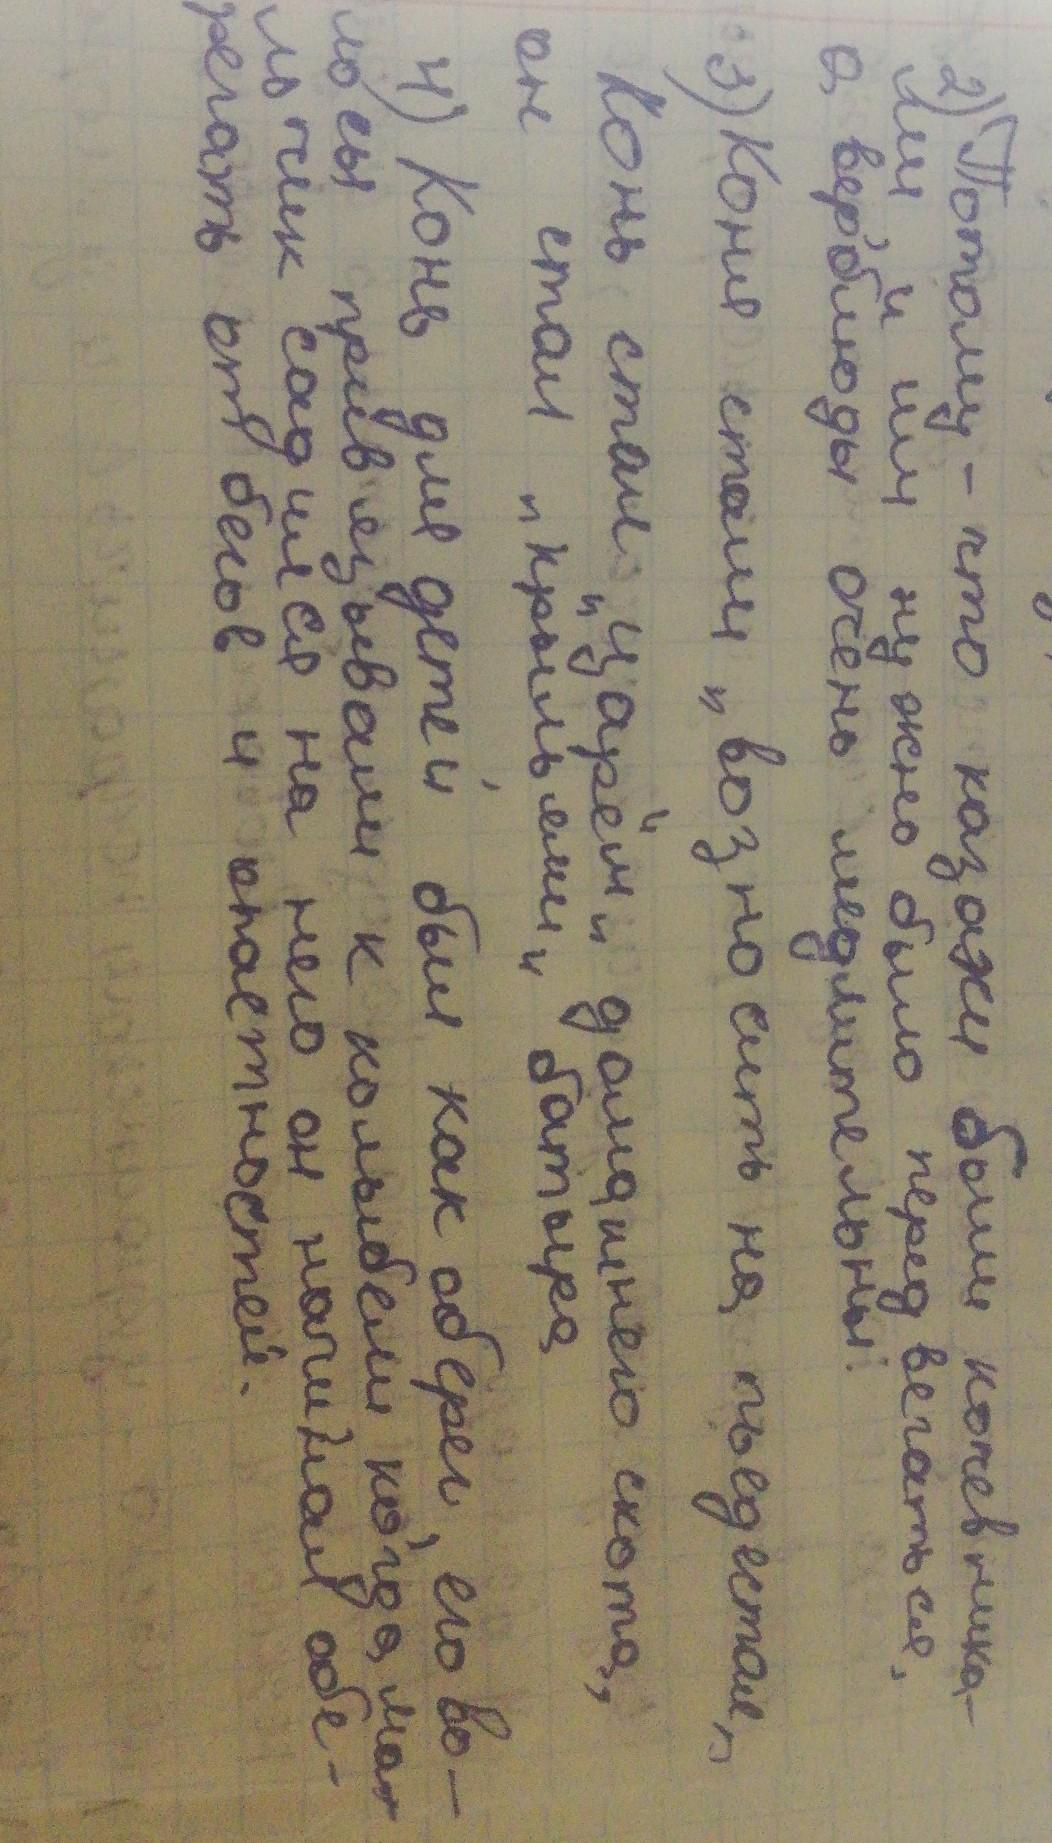 2) Потому-что казахи были кочевника-
ми и им нужно было передвегаться,
а верблюды очень медлительны.
3) Коня стали „возносить на пьедестал„
Конь стал „царём„ домашнего скота,
он стал „крыльями„ батыра
4) Конь для детей был как оберег, его во-
лосы привезывали к колыбели когда мал
ьчик садился на него он начинал обе-
регать от бегов и опастностей.